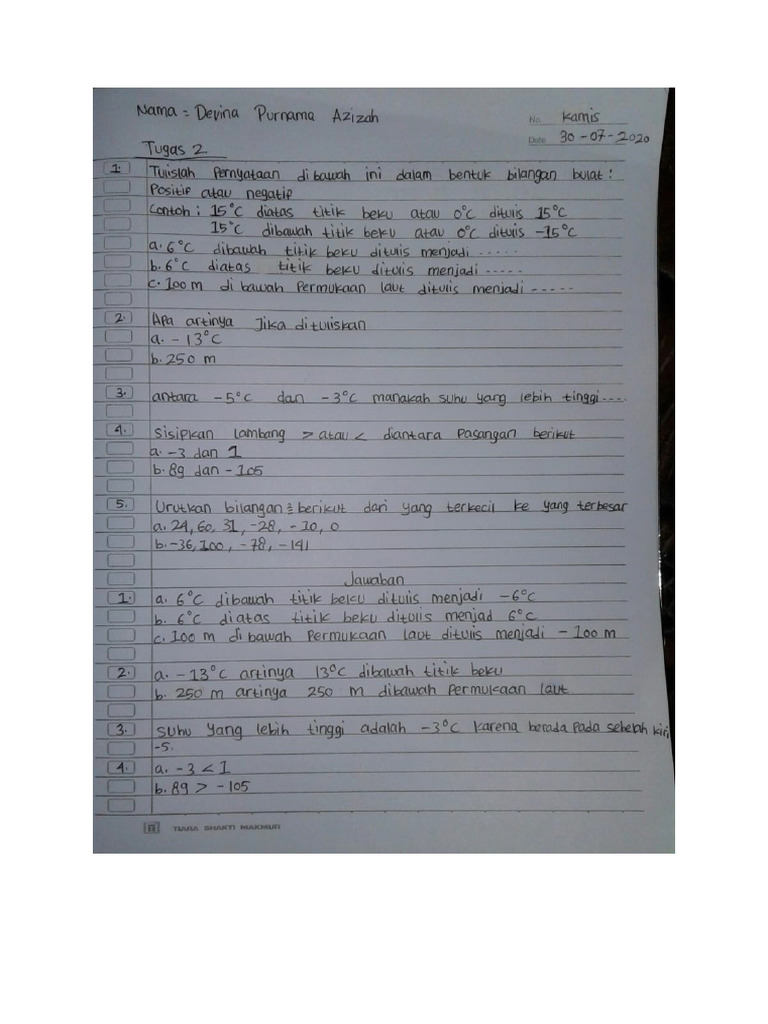 Nama = Devina Purnama Azizah
No. Kamis
Date 30-07-2020
Tugas 2
1. Tulislah Pernyataan dibawah ini dalam bentuk bilangan bulat :
Positif atau negatif
Contoh : 15°C diatas titik beku atau 0°C ditulis 15°C
15°C dibawah titik beku atau 0°C ditulis -15°C
a. 6°C dibawah titik beku ditulis menjadi .....
b. 6°C diatas titik beku ditulis menjadi .....
c. 100 m di bawah Permukaan laut ditulis menjadi .....
2. Apa artinya Jika dituliskan
a. - 13°C
b. 250 m
3. antara -5°C dan -3°C manakah suhu yang lebih tinggi....
4. Sisipkan lambang > atau < diantara Pasangan berikut
a. -3 dan 1
b. 89 dan - 105
5. Urutkan bilangan berikut dari yang terkecil ke yang terbesar
a. 24, 60, 31, -28, -10, 0
b. -36, 100, -78, -141
Jawaban
1. a. 6°C dibawah titik beku ditulis menjadi -6°C
b. 6°C diatas titik beku ditulis menjad 6°C
c. 100 m di bawah Permukaan laut ditulis menjadi - 100 m
2. a. - 13°C artinya 13°C dibawah titik beku
b. 250 m artinya 250 m dibawah Permukaan laut
3. Suhu yang lebih tinggi adalah -3°C karena berada pada sebelah kiri
-5.
4. a. -3 < 1
b. 89 > -105
TIARA SHAKTI MAKMUR